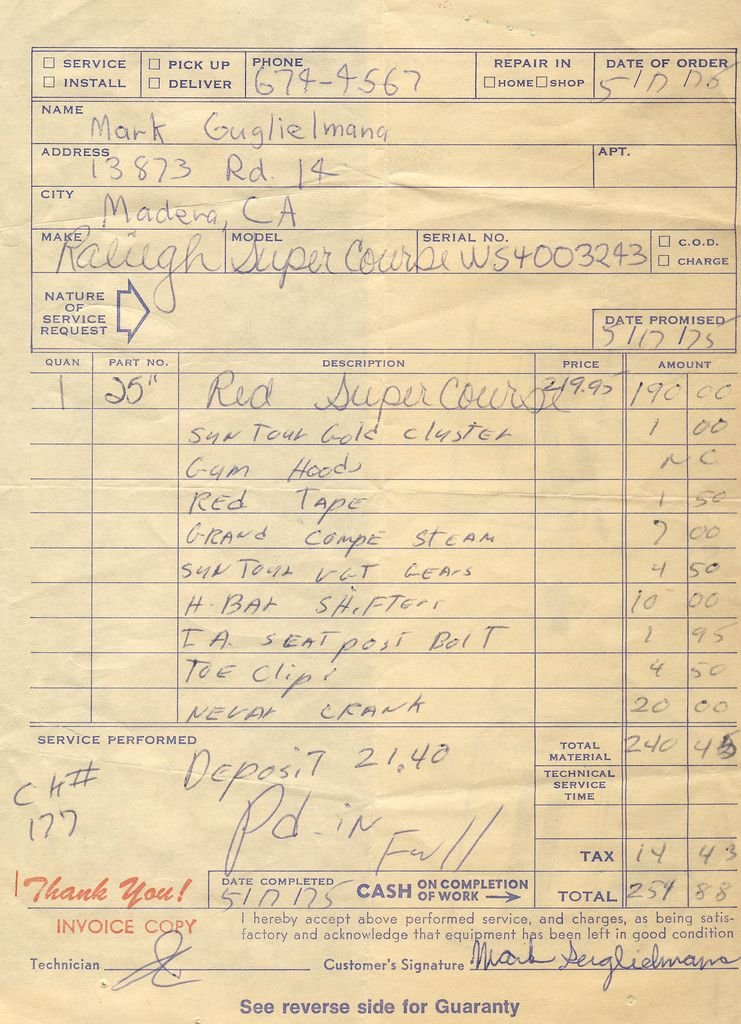 SERVICE PICK UP PHONE REPAIR IN DATE OF ORDER
INSTALL DELIVER 674-4567 HOME SHOP 5/17/75
NAME
Mark Guglielmana
ADDRESS APT.
13873 Rd. 14
CITY
Madera, CA
MAKE MODEL SERIAL NO. C.O.D.
Raleigh Super Course WS4003243 CHARGE
NATURE OF SERVICE REQUEST
DATE PROMISED
5/17/75
QUAN PART NO. DESCRIPTION PRICE AMOUNT
1 25" Red Super Course 219.95 190 00
SunTour Gold cluster 1 00
Gum Hoods NC
REd TAPE 1 50
GRANd COMPE STEAM 7 00
SUNTOUR VGT GEArs 4 50
H-BAR SHiFTErs 10 00
T.A. SEATpost BolT 1 95
TOE Clips 4 50
NEVAR CRANK 20 00
SERVICE PERFORMED
Deposit 21.40
TOTAL MATERIAL 240 45
CH#
177
TECHNICAL SERVICE TIME
Pd-in Full
TAX 14 43
Thank You!
DATE COMPLETED 5/17/75 CASH ON COMPLETION OF WORK TOTAL 254 88
INVOICE COPY
I hereby accept above performed service, and charges, as being satis-
factory and acknowledge that equipment has been left in good condition
Technician Customer's Signature Mark Guglielmana
See reverse side for Guaranty